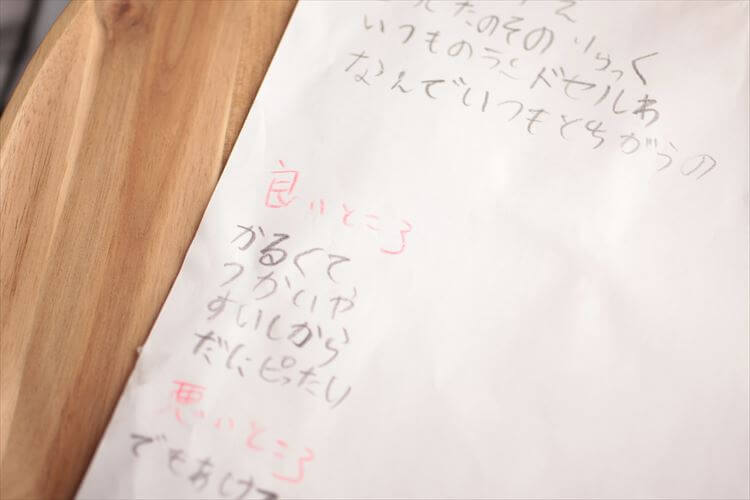 したのそのりらっく
いつものランドセルわ
なんでいつもとちがうの
良いところ
かるくて
つかいや
すいしから
だにピったり
悪いところ
でもあけて